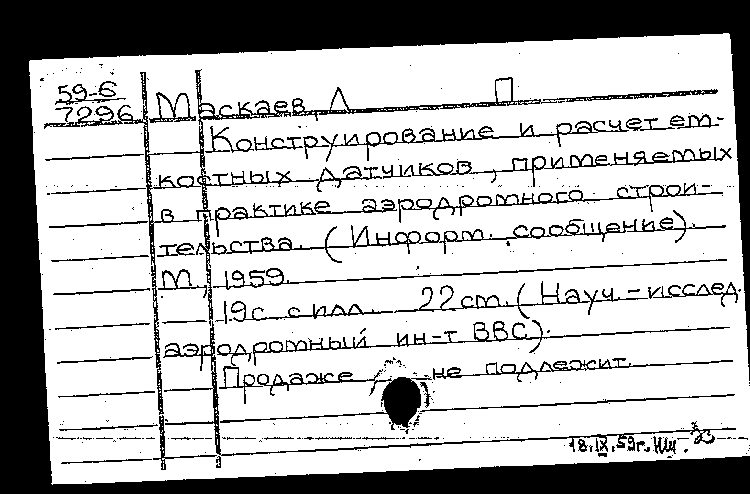 59-6 П
7296 Маскаев, Л
Конструирование и расчет ем-
костных датчиков, применяемых
в практике аэродромного строи-
тельства. (Информ. сообщение).
М, 1959.
19с. с илл. 22 см. (Науч.-исслед.
аэродромный ин-т ВВС).
Продаже не подлежит.
18.IX.59г.